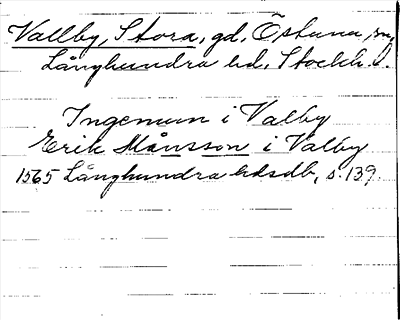 Vallby, Stora, gd, Östuna sn,
Långhundra hd, Stockh. l.
Ingemun i Valby
Erik Månsson i Valby
1565 Långhundra hdsdb, s. 139.